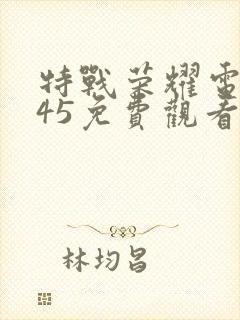 特戰荣耀電
45免費觀看
林均昌